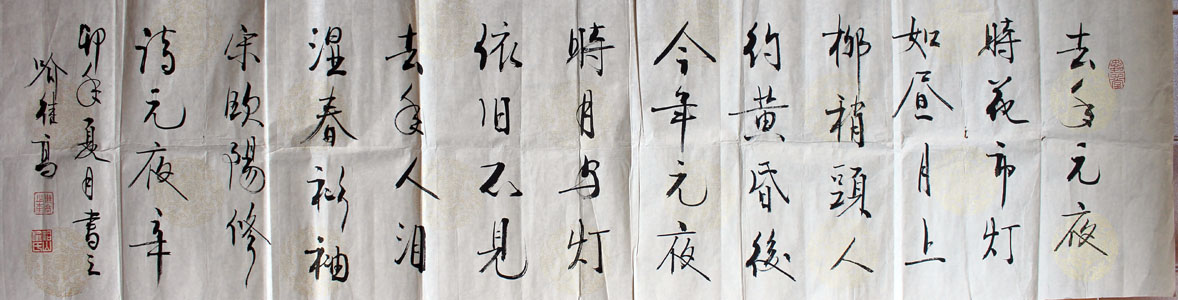 去年元夜
時花市灯
如昼月上
柳稍頭人
约黄昏後
今年元夜
時月与灯
依旧不見
去年人泪
湿春衫袖
宋欧陽修
詩元夜辛
卯年夏月書之
高